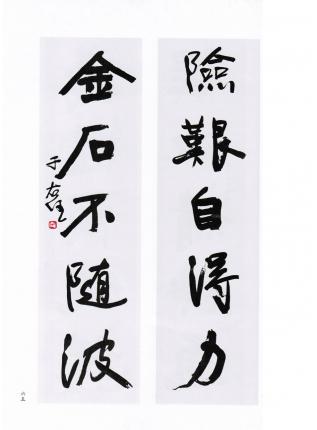 險艱自得力
金石不隨波
于右任
六五